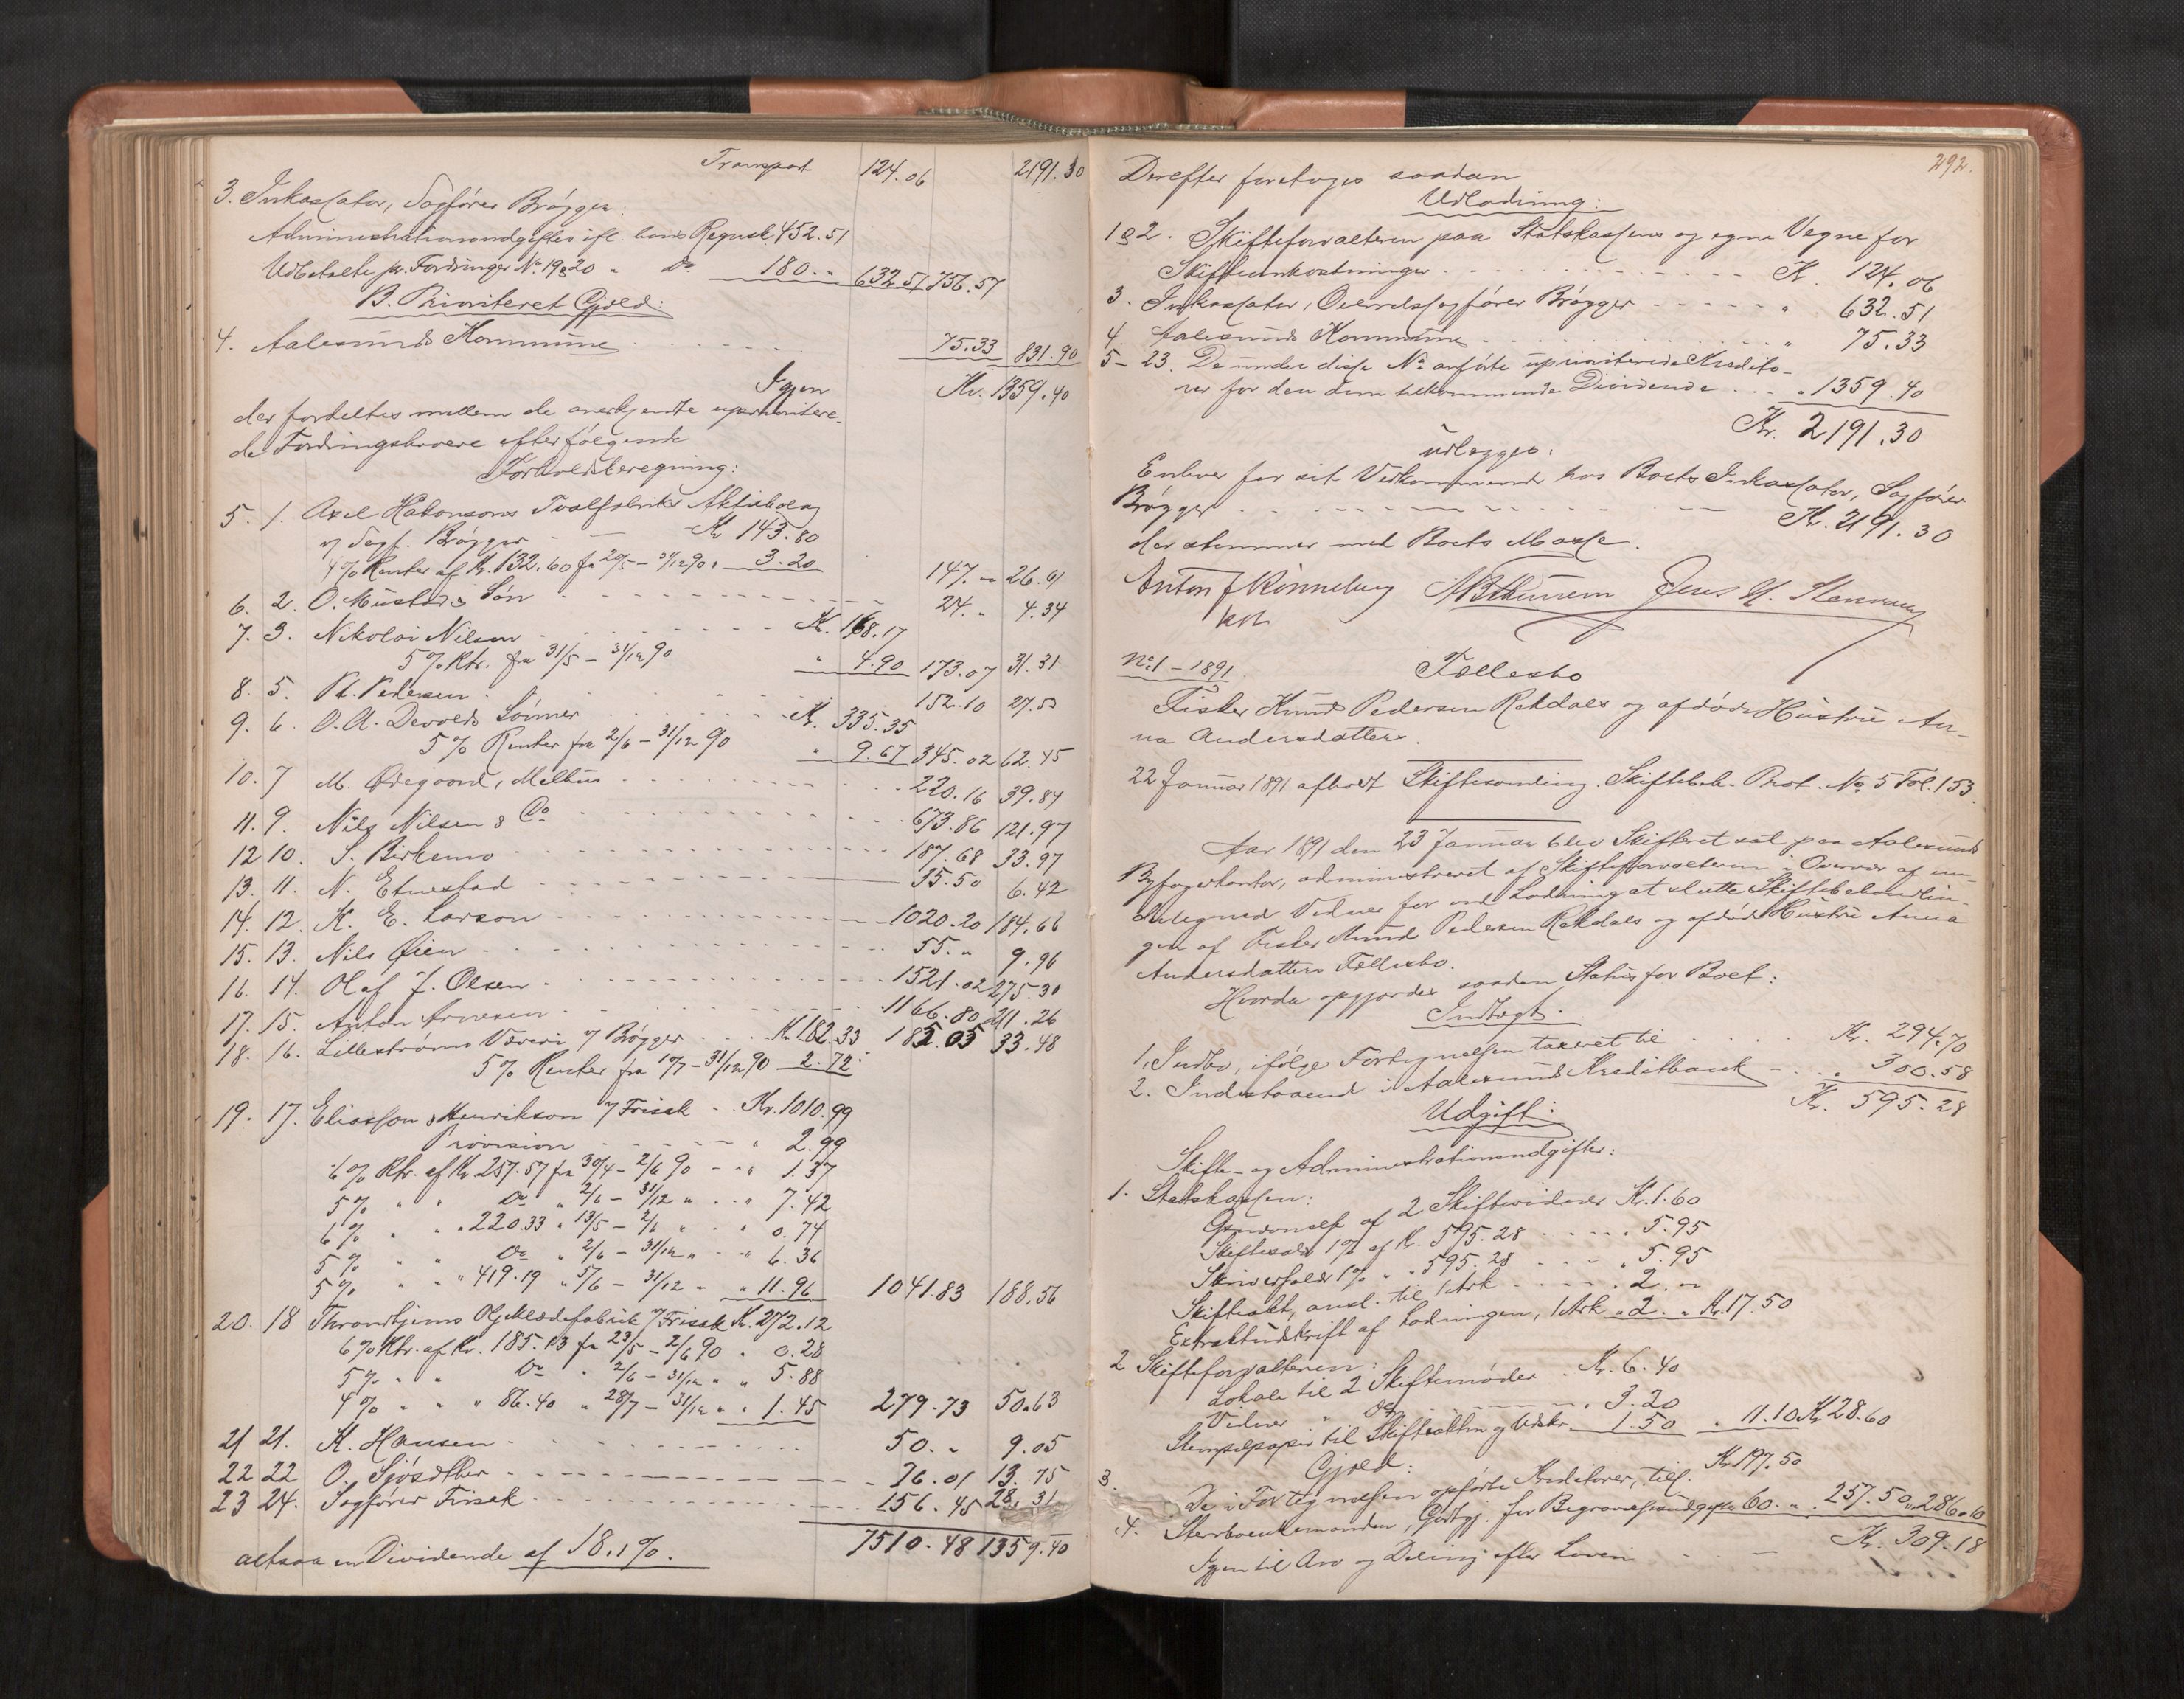 Transport 124.06 2191.30
3. Inkassator, Sagfører Brøgger:
Administrationsudgifter ifl. hans Regnsk. 452.51
Udbetalte pr. Fordringer No 19 & 20 " Do 180. " 632.51 756.57
B. Prioriteret Gjæld:
4. Aalesunds Kommune 75.33 831.90
Igjen Kr. 1359.40
der fordeltes mellem de anerkjendte uprioritere-
de Fordringshavere efter følgende
Forholdsberegning:
5. 1. Axel Håkansons Tvalfabriks Aktiebolag
v/ Sagf. Brøgger Kr 143.80
4% Renter af Kr. 132.60 fra 20/5 - 31/12 90 " 3.20 147. " 26.61
6. 2. O. Mustad & Søn 24. " 4.34
7. 3. Nikolai Nilsen Kr. 168.17
5% Rtr. fra 31/5 - 31/12 90 " 4.90 173.07 31.31
8. 5. Pedersen 152.10 27.53
9. 6. O. A. Devolds Sønner Kr. 335.35
5% Renter fra 2/6 - 31/12 90 " 9.67 345.02 62.45
10. 7 M. Ødegaard, Melhus 220.16 39.84
11. 9. Nils Nilsen & Co 673.86 121.97
12 10. S. Birkemo 187.68 33.97
13. 11. N. Etnestad 35.50 6.42
14. 12. K. E. Larson 1020.20 184.66
15. 13. Nils Øien 55. " 9.96
16. 14. Olaf J. Olsen 1521.02 275.30
17. 15. Anton Arnesen 1166.80 211.26
18. 16. Lillestrøms Væveri v/ Brøgger Kr. 182.33 185.05 33.48
5% Renter fra 10/7 - 31/12 90 2.72
19. 17. Eliasson & Henrikson v/ Frisak Kr. 1010.99
Provision " 2.99
6% Rtr. af Kr. 257.57 fra 30/4 - 2/6 90 " 1.37
5% " " Do " 2/6 - 31/12 " " 7.42
6% " " 220.33 " 13/5 - 2/6 " " 0.74
5% " " Do " 2/6 - 31/12 " " 6.36
5% " " " 419.19 " 5/6 - 31/12 " " 11.96 1041.83 188.56
20. 18 Throndhjems Oljeklædefabrik v/ Frisak Kr. 272.12
6% Rtr. af Kr. 185.13 fra 23/5 - 2/6 90 " 0.28
5% " " Do " 2/6 - 31/12 " " 5.88
4% " " " 86.40 " 28/7 - 31/12 " " 1.45 279.73 50.63
21 21. K. Hansen 50. " 9.05
22 22 O. 76.01 13.75
23 24. Sagfører Frisak 156.45 28.31
7510.48 1359.40
altsaa en Dividende af 18.1%.
292.
Derefter foretages saadan
Udlodning:
1 & 2. Skifteforvalteren paa Statskassens og egne Vegne for
Skifteomkostninger Kr. 124.06
3. Inkassator, Overretssagfører Brøgger " 632.51
4. Aalesunds Kommune " 75.33
5 - 23. De under disse No anførte uprioriterede Kredito-
rer for den dem tilkommende Dividende " 1359.40
Kr. 2191.30
udlægges:
Enhver for sit Vedkommende hos Boets Inkassator, Sagfører
Brøgger Kr. 2191.30
der stemmer med Boets Masse.
Anton J Rønneberg Jens
kst
No 1 - 1891.
Fællesbo
Fisker Knud Pedersen Rekdals og afdøde Hustru An-
na Andersdatters.
22 Januar 1891 afholdt Skiftesamling. Skiftebeh. Prot. No 5 Fol. 153.
Aar 1891 den 23 Januar blev Skifteret sat paa Aalesunds
Byfogedkontor, administreret af Skifteforvalteren i Overvær af un-
dertegnede Vidner for ved Lodning at slutte Skiftebehandlin-
gen af Fisker Knud Pedersen Rekdals og afdøde Hustru Anna
Andersdatters Fællesbo.
Hvorda opgjordes saadan Status for Boet:
Indtægt.
1. Indbo, ifølge Fortegnelsen taxeret til Kr. 294.70
2. Indestaaende i Aalesunds Kreditbank " 300.58
Kr. 595.28
Udgift:
Skifte- og Administrationsudgifter:
1. Statskassen:
af 2 Skiftevidner Kr. 1.60
Skiftesalær 1% af Kr. 595.28 " 5.95
Skriversalær 1% " " 595.28 " 5.95
Skifteakt, ansl. til 1 Ark " 2. "
Extraktudskrift af Lodningen, 1 Ark " 2. " Kr. 17.50
2 Skifteforvalteren:
Lokale til 2 Skiftemøder Kr. 6.40
Vidner " Do " 3.20
Stempelpapir til Skifteakten og Udskr. 1.50 " 11.10 Kr. 28.60
Gjæld:
3. De i Fortegnelsen opførte Kreditorer, tils. Kr. 197.50
4. Sterboenkemanden, Godtgj. for Begravelsesudgifter 60. " 257.50 " 286.10
Igjen til Arv og Deling efter Loven Kr. 309.18